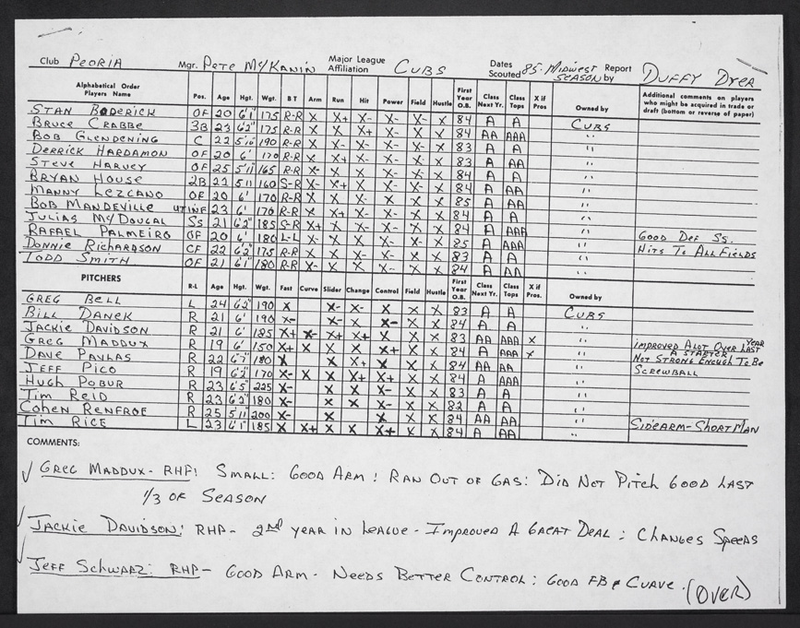 Club PEORIA Mgr. PETE MacKANIN Major League Affiliation CUBS Dates Scouted 85-MIDWEST SEASON Report by DUFFY DYER
Alphabetical Order Players Name Pos. Age Hgt. Wgt. B T Arm Run Hit Power Field Hustle First Year O.B. Class Next Yr. Class Tops X if Pros. Owned by Additional comments on players who might be acquired in trade or draft (bottom or reverse of paper)
STAN BODERICK OF 20 6'1" 175 R-R X X+ X- X- X- X 84 A A CUBS
BRUCE CRABBE 3B 23 6'2" 175 R-R X X X+ X- X X 84 AA AAA "
BOB GLENDENING C 22 5'10" 190 R-R 83 A A "
DERRICK HARDAMON OF 20 6' 170 R-R 83 A AA "
STEVE HARVEY OF 25 5'11" 165 R-R 84 A A "
BRYAN HOUSE 2B 22 5'11" 160 S-R 84 A AA "
MANNY LEZCANO OF 20 6' 170 R-R 85 A A "
BOB MANDEVILLE UT INF 23 6' 170 R-R 84 A A "
JULIAS McDOUGAL SS 21 6'2" 185 S-R 84 A AAA " GOOD DEF SS.
RAFAEL PALMEIRO OF 20 6' 180 L-L 85 A AAA " HITS TO ALL FIELDS
DONNIE RICHARDSON CF 22 6'2" 175 R-R 83 A A "
TODD SMITH OF 21 6'1" 180 R-R 84 A AA "
PITCHERS R-L Age Hgt. Wgt. Fast Curve Slider Change Control Field Hustle First Year O.B. Class Next Yr. Class Tops X if Pros. Owned by
GREG BELL L 24 6'2" 190 X 83 A A CUBS
BILL DANEK R 21 6' 190 X- 84 A A "
JACKIE DAVIDSON R 21 6' 185 X+ X- X+ X+ X X X 83 AA AAA X " IMPROVED A LOT OVER LAST YEAR
GREG MADDUX R 19 6' 150 X+ X X X X+ X X 84 A AAA X " A STARTER
DAVE PAVLAS R 22 6'7" 180 X 84 AA AA " NOT STRONG ENOUGH TO BE
JEFF PICO R 19 6'2" 170 X- X X X+ X+ X X 84 A AAA " SCREWBALL
HUGH POBUR R 23 6'5" 225 X- 83 A A "
TIM REID R 23 6'2" 180 X- 82 A A "
COHEN RENFROE R 25 5'11" 200 X- 84 AA AA " SIDEARM-SHORT MAN
TIM RICE L 23 6'1" 185 X X+ X X X+ X X 84 A AA "
COMMENTS:
✓ GREG MADDUX- RHP: SMALL: GOOD ARM: RAN OUT OF GAS: DID NOT PITCH GOOD LAST
1/3 OF SEASON
✓ JACKIE DAVIDSON: RHP- 2nd YEAR IN LEAGUE- IMPROVED A GREAT DEAL: CHANGES SPEEDS
✓ JEFF SCHWARZ: RHP- GOOD ARM- NEEDS BETTER CONTROL: GOOD FB & CURVE. (OVER)